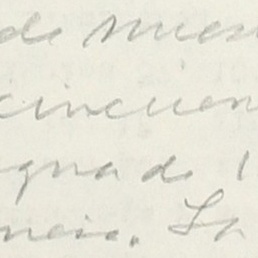 de nues
cincuen
gua de l
ncia. La